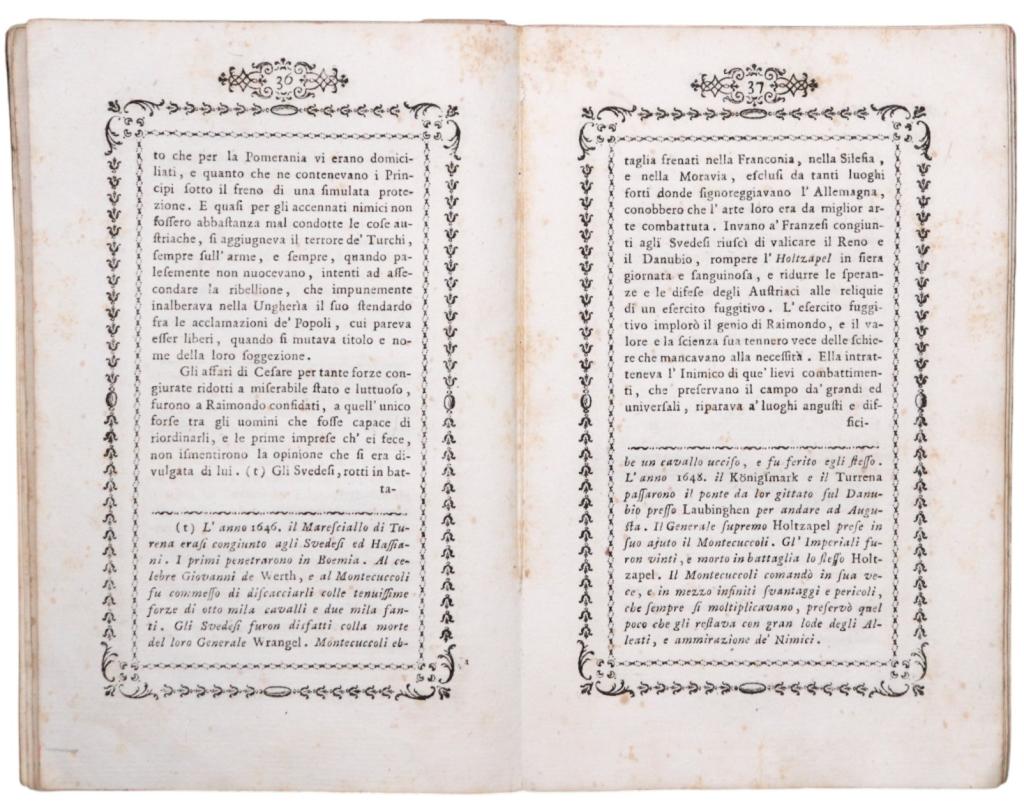 36
to che per la Pomerania vi erano domici-
liati, e quanto che ne contenevano i Prin-
cipi ſotto il freno di una ſimulata prote-
zione. E quaſi per gli accennati nimici non
foſſero abbaſtanza mal condotte le coſe au-
ſtriache, ſi aggiugneva il terrore de' Turchi,
ſempre ſull' arme, e ſempre, quando pa-
leſemente non nuocevano, intenti ad aſſe-
condare la ribellione, che impunemente
inalberava nella Ungherìa il ſuo ſtendardo
fra le acclamazioni de' Popoli, cui pareva
eſſer liberi, quando ſi mutava titolo e no-
me della loro ſoggezione.
Gli affari di Ceſare per tante forze con-
giurate ridotti a miſerabile ſtato e luttuoſo,
furono a Raimondo confidati, a quell' unico
forſe tra gli uomini che foſſe capace di
riordinarli, e le prime impreſe ch' ei fece,
non iſmentirono la opinione che ſi era di-
vulgata di lui. (t) Gli Svedeſi, rotti in bat-
ta-
(t) L' anno 1646. il Mareſciallo di Tu-
rena eraſi congiunto agli Svedeſi ed Haſſia-
ni. I primi penetrarono in Boemia. Al ce-
lebre Giovanni de Werth, e al Montecuccoli
fu commeſſo di diſcacciarli colle tenuiſſime
forze di otto mila cavalli e due mila fan-
ti. Gli Svedeſi furon disfatti colla morte
del loro Generale Wrangel. Montecuccoli eb-
37
taglia frenati nella Franconia, nella Sileſia,
e nella Moravia, eſcluſi da tanti luoghi
forti donde ſignoreggiavano l' Allemagna,
conobbero che l' arte loro era da miglior ar-
te combattuta. Invano a' Franzeſi congiun-
ti agli Svedeſi riuſcì di valicare il Reno e
il Danubio, rompere l' Holtzapel in fiera
giornata e ſanguinoſa, e ridurre le ſperan-
ze e le difeſe degli Auſtriaci alle reliquie
di un eſercito fuggitivo. L' eſercito fuggi-
tivo implorò il genio di Raimondo, e il va-
lore e la ſcienza ſua tennero vece delle ſchie-
re che mancavano alla neceſſità. Ella intrat-
teneva l' Inimico di que' lievi combattimen-
ti, che preſervano il campo da' grandi ed
univerſali, riparava a' luoghi anguſti e dif-
fici-
be un cavallo ucciſo, e fu ferito egli ſteſſo.
L' anno 1648. il Königſmark e il Turrena
paſſarono il ponte da lor gittato ſul Danu-
bio preſſo Laubinghen per andare ad Augu-
ſta. Il Generale ſupremo Holtzapel preſe in
ſuo ajuto il Montecuccoli. Gl' Imperiali fu-
ron vinti, e morto in battaglia lo ſteſſo Holt-
zapel. Il Montecuccoli comandò in ſua ve-
ce, e in mezzo infiniti ſvantaggi e pericoli,
che ſempre ſi moltiplicavano, preſervò quel
poco che gli reſtava con gran lode degli Al-
leati, e ammirazione de' Nimici.